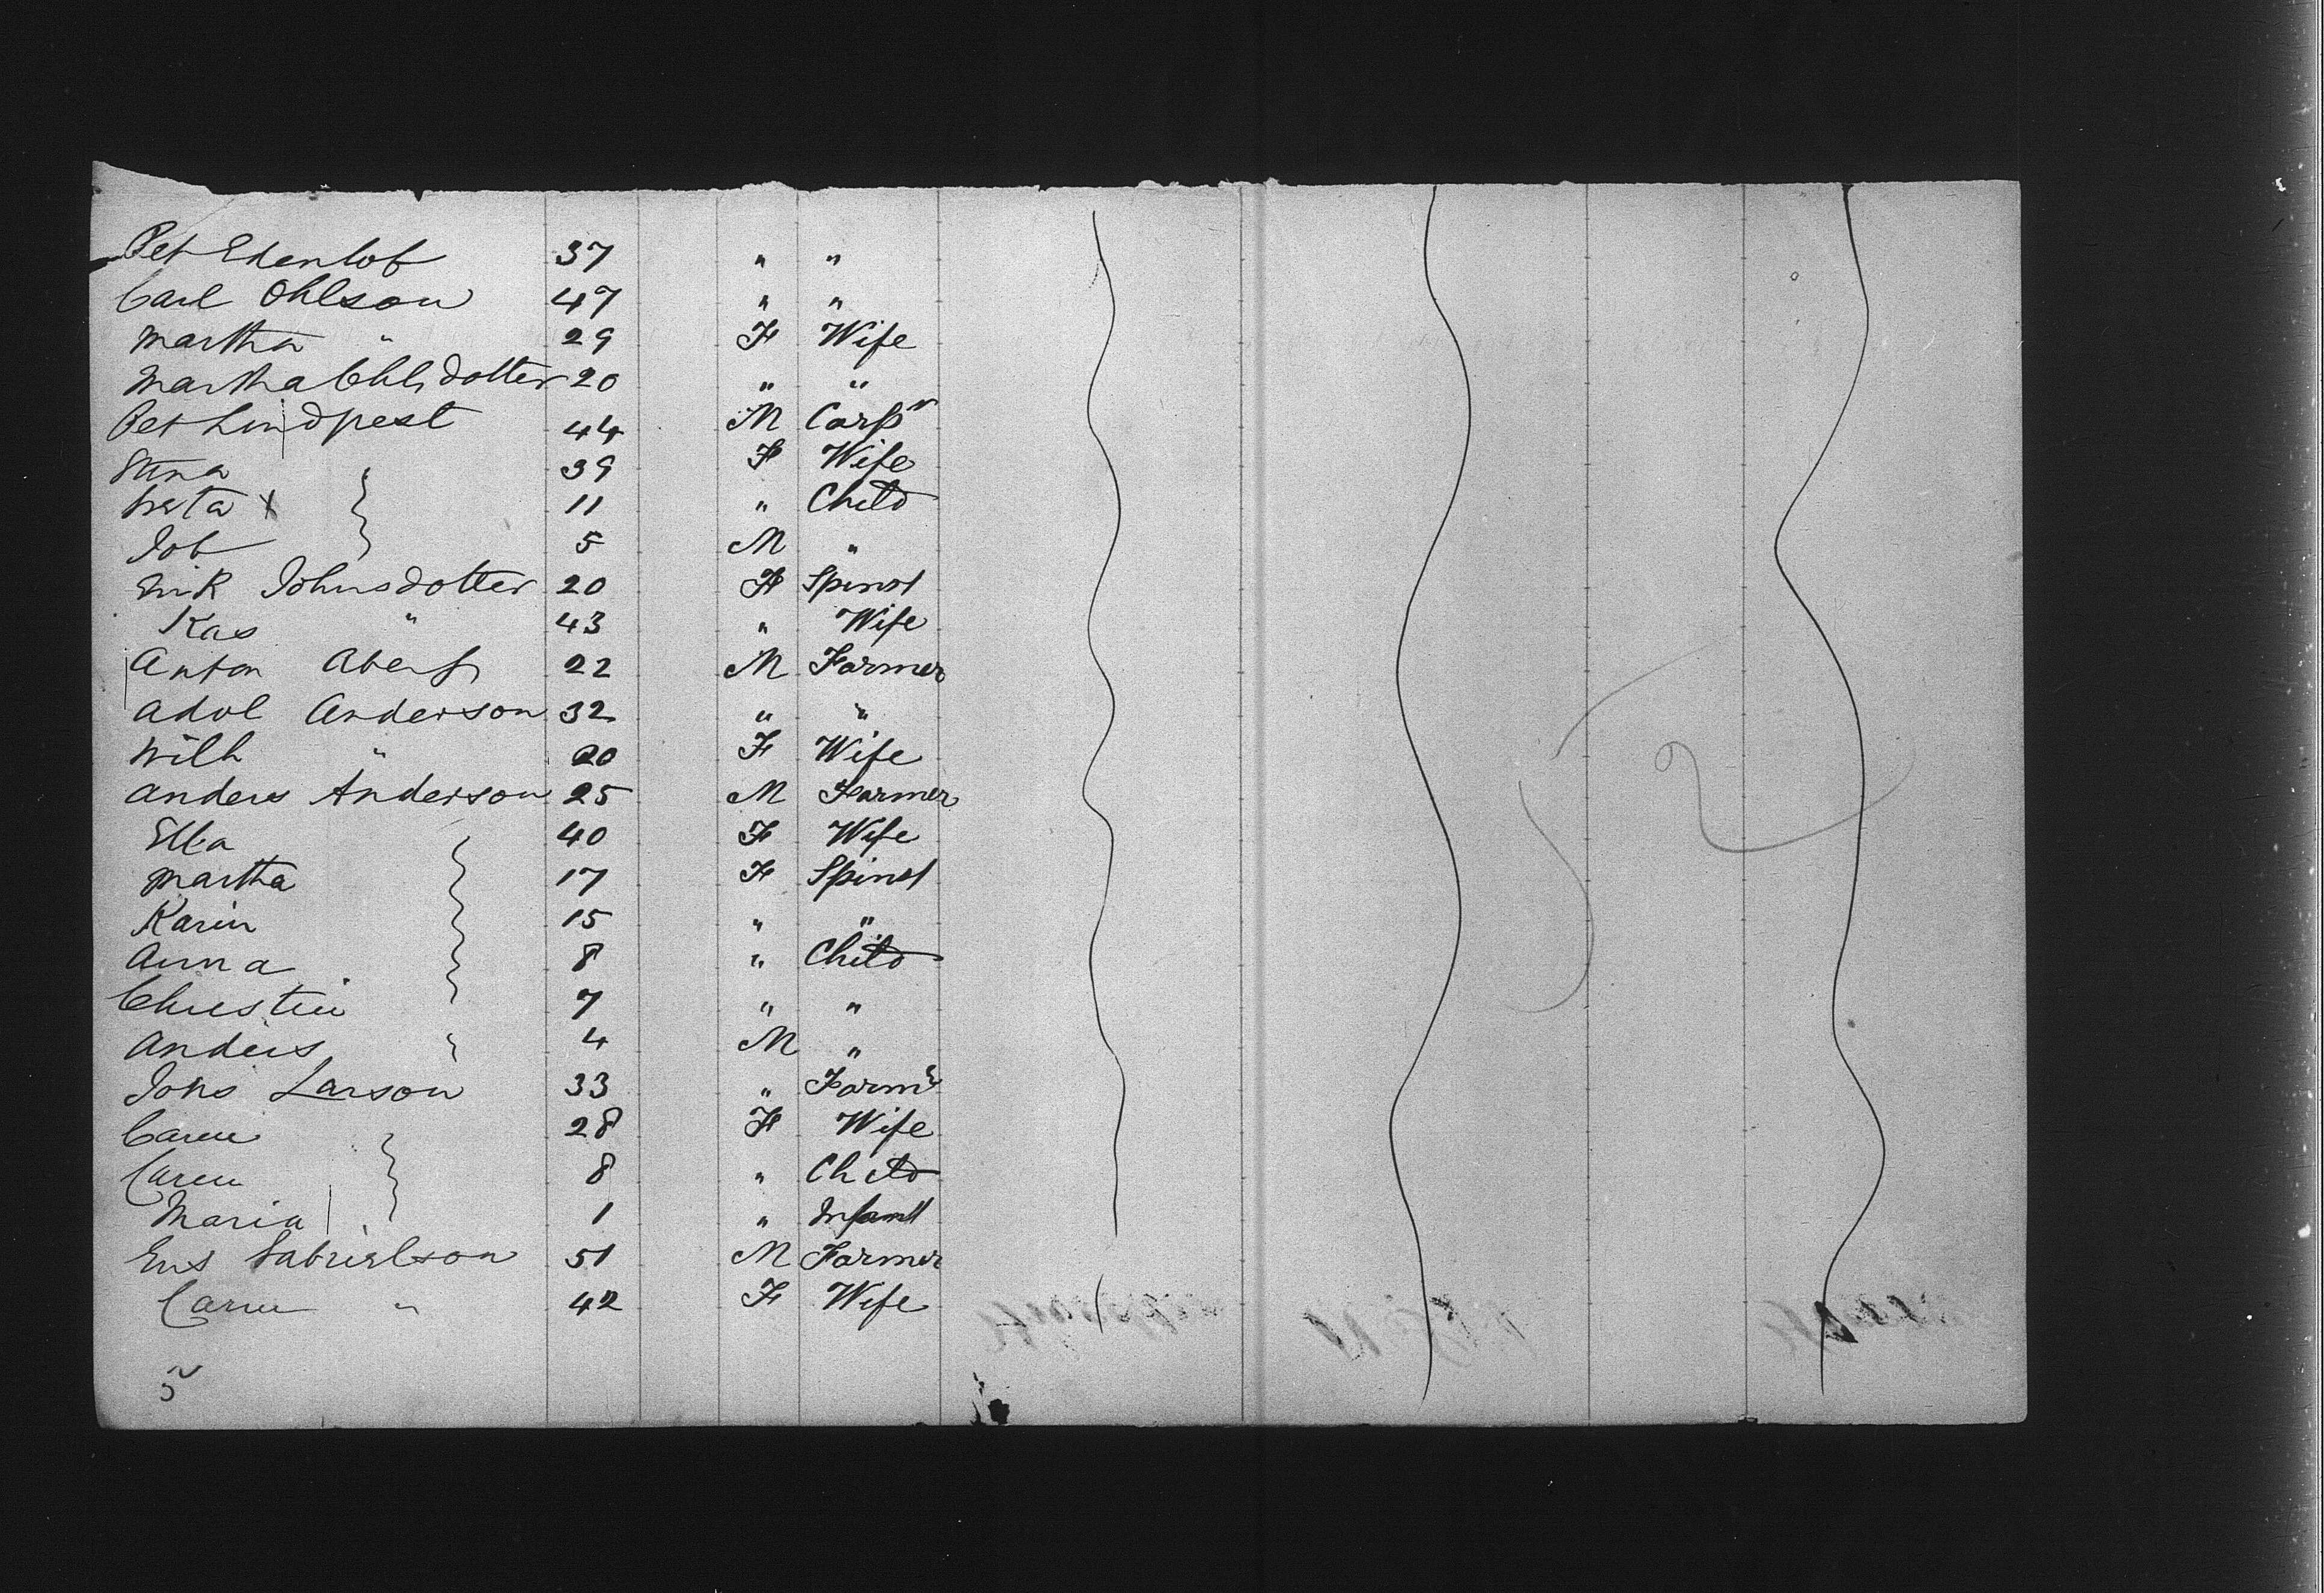 Pet Edenlof 37 " "
Carl Ohlson 47 " "
Martha " 29 F Wife
Martha Ohlsdotter 20 " "
Pet Lindpest 44 M Carpr
Stina 39 F Wife
Greta X 11 " Child
Job 5 M "
Erik Johnsdotter 20 F Spinst
Kas " 43 " Wife
Anton Aberg 22 M Farmer
Adol Anderson 32 " "
Wilh " 20 F Wife
Anders Anderson 25 M Farmer
Ella 40 F Wife
Martha 17 F Spinst
Karin 15 " "
Anna 8 " Child
Christin 7 " "
Anders 4 M "
Johs Larson 33 " Farmr
Caren 28 F Wife
Caren 8 " Child
Maria 1 " Infant
Ens Gabrielson 51 M Farmer
Caren " 42 F Wife